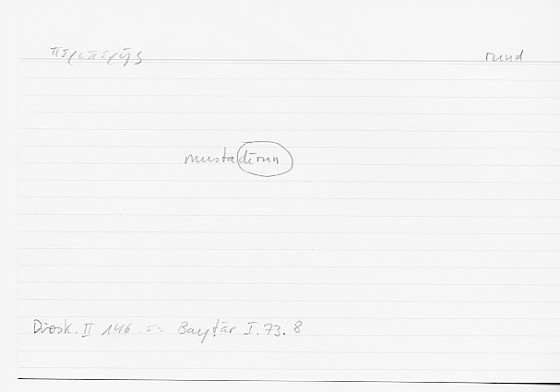 περιφερής rund
mustadīrun
Diosk. II 146 = Bayṭār I. 73. 8